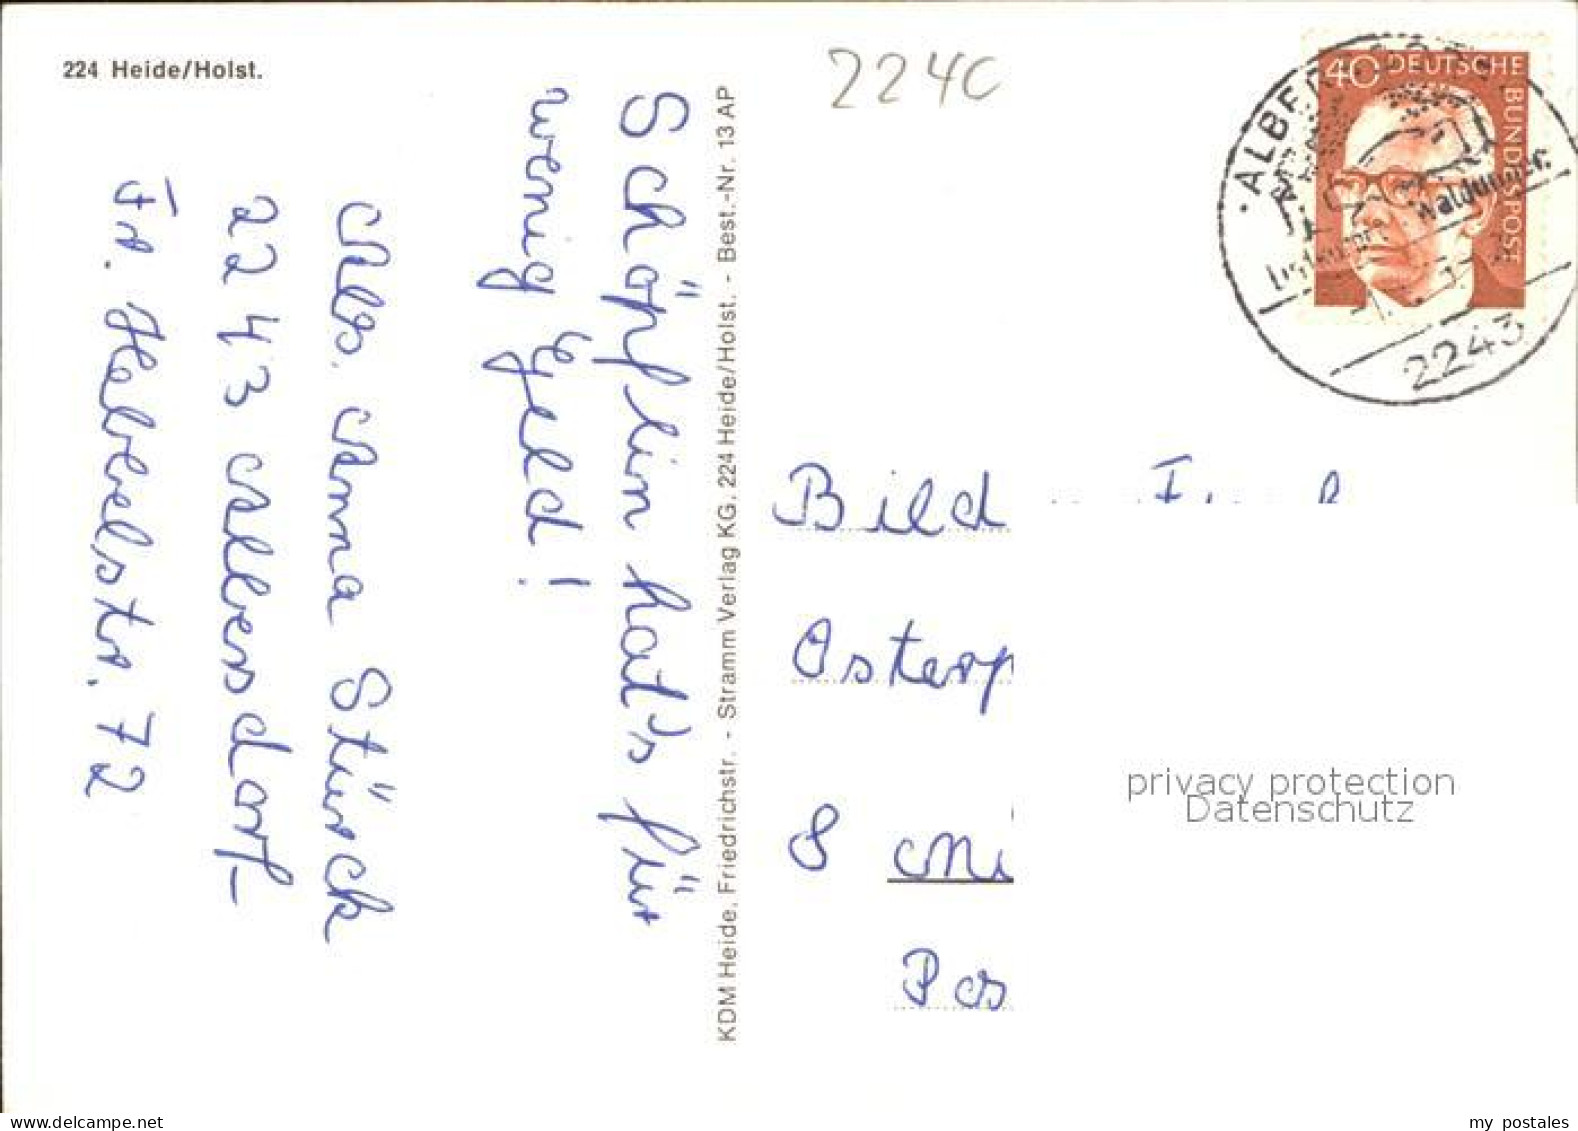 224 Heide/Holst.
2240
Schöpflin hat's für
wenig Geld!
Abs. Anna Stürck
2243 Albersdorf
Fr. Hebbelstr. 72
KDM Heide, Friedrichstr. - Stramm Verlag KG. 224 Heide/Holst. - Best.-Nr. 13 AP
40 DEUTSCHE
BUNDESPOST
2243
Bild
Osterp
8 Mü
Pos
privacy protection
Datenschutz
www.delcampe.net
my_postales